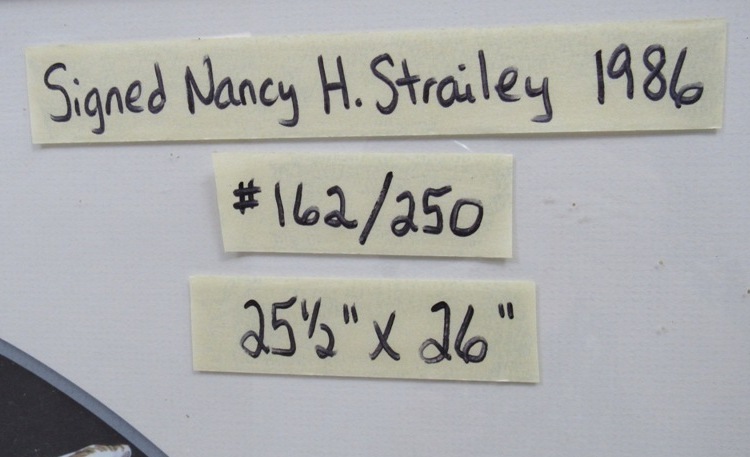 Signed Nancy H. Strailey 1986
#162/250
25½" x 26"